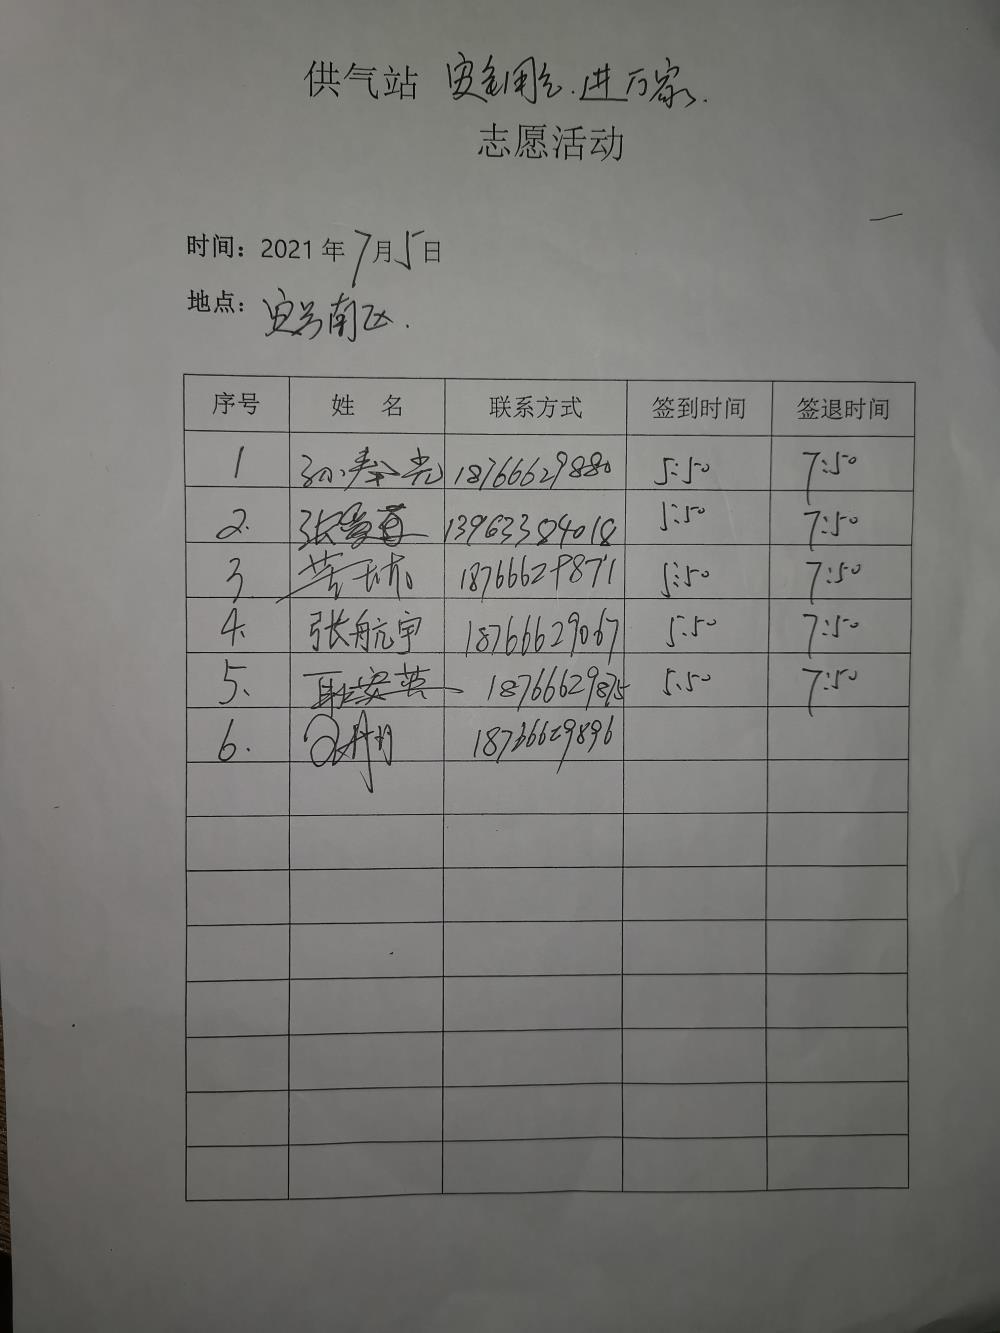 供气站 安全用气.进万家.
志愿活动
时间：2021年7月5日
地点：安兴南区.
序号 姓 名 联系方式 签到时间 签退时间
1 孙奉光 18766629880 5:50 7:50
2. 张 13963384018 5:50 7:50
3 18766629871 5:50 7:50
4. 张航宇 18766629067 5:50 7:50
5. 耿安英 18766629875 5:50 7:50
6. 18766629896